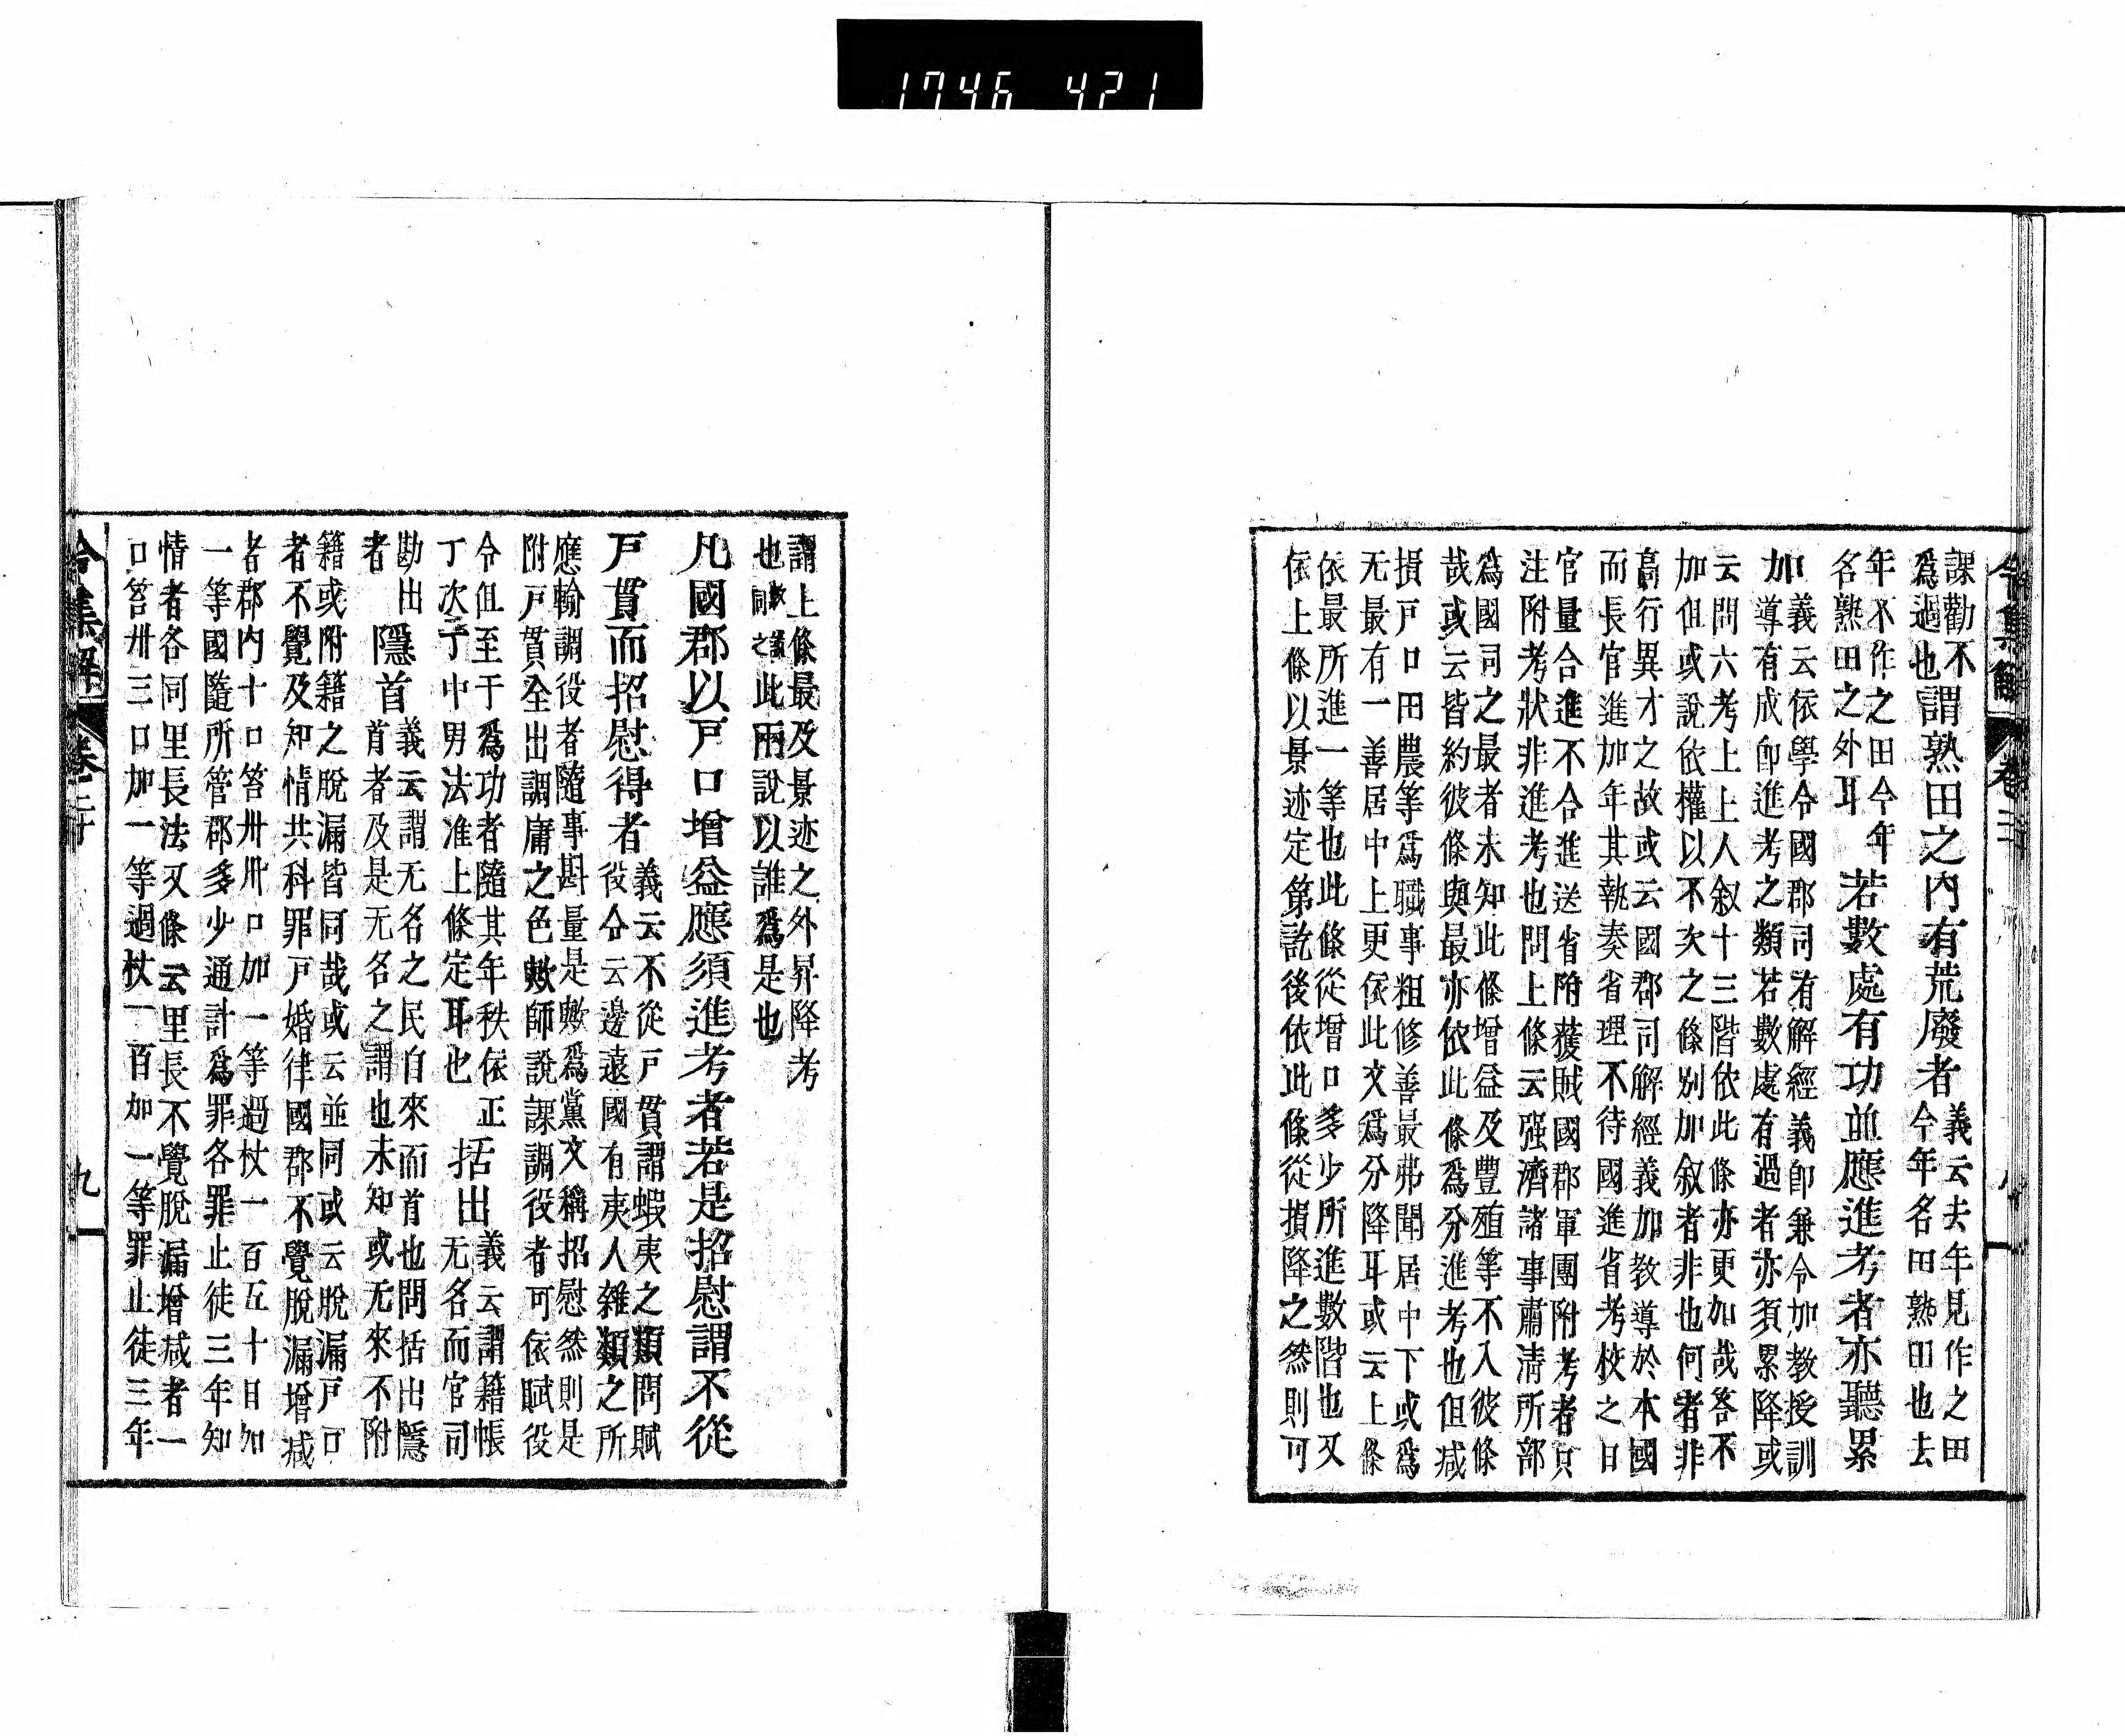 1746 421
令集解 卷二
課勸不
爲過也謂熟田之內有荒廢者義云去年見作之田
今年名田熟田也去
年不作之田今年
名熟田之外耳若數處有功並應進考者亦聽累
加義云依學令國郡司有解經義卽兼令加教授訓
導有成卽進考之類若數處有過者亦須累降或
云問六考上上人敘十三階依此條亦更加哉答不
加但或說依權以不次之條別加敘者非也何者非
高行異才之故或云國郡司解經義加教導於本國
而長官進加年其執奏省理不待國進省考校之日
官量合進不合進送省附獲賊國郡軍團附考者只
注附考狀非進考也問上條云强濟諸事肅淸所部
爲國司之最者未知此條增益及豐殖等不入彼條
哉或云皆約彼條與最亦依此條爲分進考也但減
損戶口田農等爲職事粗修善最弗聞居中下或爲
无最有一善居中上更依此文爲分降耳或云上條
依最所進一等也此條從增口多少所進數階也又
依上條以景迹定第訖後依此條從損降之然則可
謂上條最及景迹之外昇降考
也數讚同之此兩說以誰爲是也
凡國郡以戶口增益應須進考者若是招慰謂不從
戶貫而招慰得者義云不從戶貫謂蝦夷之類問賦
役令云邊遠國有夷人雜類之所
應輸調役者隨事斟量是數爲黨文稱招慰然則是
附戶貫全出調庸之色數師說課調役者可依賦役
令但至于爲功者隨其年秩依正
丁次丁中男法准上條定耳也括出義云謂籍帳
无名而官司
勘出隱首義云謂无名之民自來而首也問括出隱
首者及是无名之謂也未知或无來不附
者
籍或附籍之脫漏皆同哉或云並同或云脫漏戶口
者不覺及知情共科罪戶婚律國郡不覺脫漏增減
者郡內十口笞卅卅口加一等過杖一百五十日加
一等國隨所管郡多少通計爲罪各罪止徒三年知
情者各同里長法又條云里長不覺脫漏增減者一
口笞卅三口加一等過杖一百加一等罪止徒三年
令集解 卷二十 九